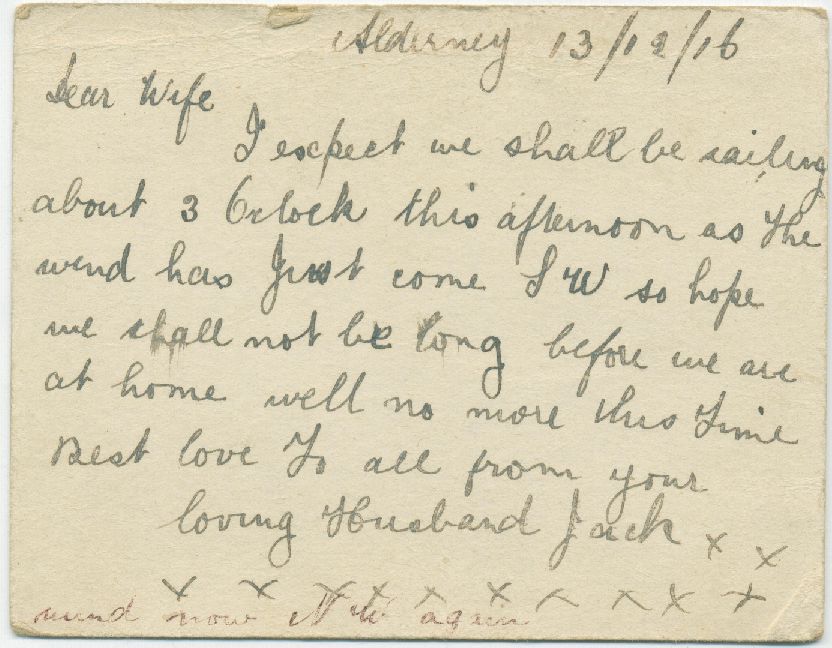 Alderney 13/12/16
Dear Wife
I expect we shall be sailing
about 3 Oclock this afternoon as the
wind has Just come S W so hope
we shall not be long before we are
at home well no more this time
Best love To all from your
loving Husband Jack x x
x x x x x x x x x x
wind now N W again